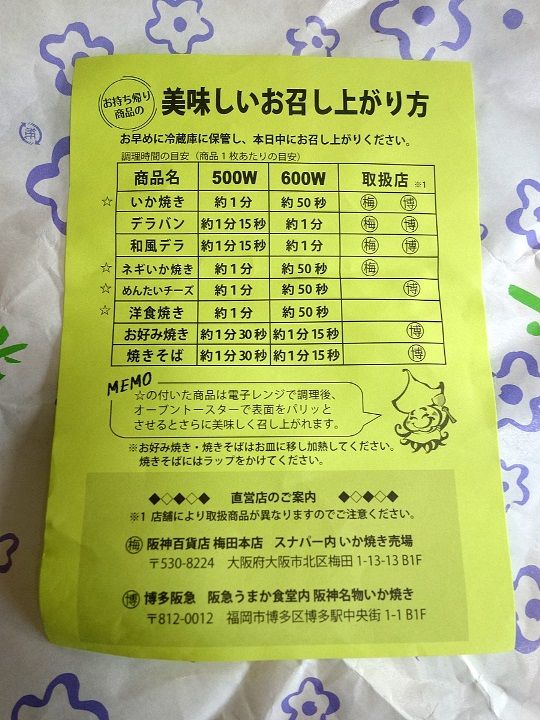 お持ち帰り
商品の
美味しいお召し上がり方
お早めに冷蔵庫に保管し、本日中にお召し上がりください。
調理時間の目安（商品1枚あたりの目安）
商品名 500W 600W 取扱店 ※1
☆ いか焼き 約1分 約50秒 梅 博
デラバン 約1分15秒 約1分 梅 博
和風デラ 約1分15秒 約1分 梅 博
☆ ネギいか焼き 約1分 約50秒 梅
☆ めんたいチーズ 約1分 約50秒 博
☆ 洋食焼き 約1分 約50秒
お好み焼き 約1分30秒 約1分15秒 博
焼きそば 約1分30秒 約1分15秒 博
MEMO
☆の付いた商品は電子レンジで調理後、
オーブントースターで表面をパリッと
させるとさらに美味しく召し上がれます。
※お好み焼き・焼きそばはお皿に移し加熱してください。
焼きそばにはラップをかけてください。
◆◇◆◇◆ 直営店のご案内 ◆◇◆◇◆
※1 店舗により取扱商品が異なりますのでご注意ください。
梅 阪神百貨店 梅田本店 スナパー内 いか焼き売場
〒530-8224 大阪府大阪市北区梅田 1-13-13 B1F
博 博多阪急 阪急うまか食堂内 阪神名物いか焼き
〒812-0012 福岡市博多区博多駅中央街 1-1 B1F